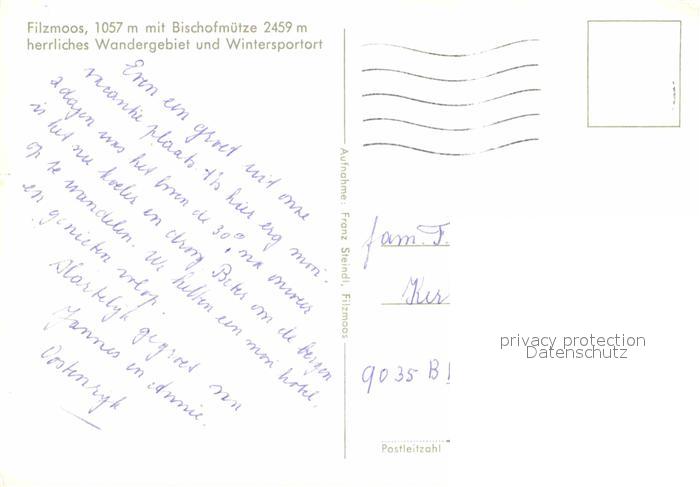 Filzmoos, 1057 m mit Bischofmütze 2459 m
herrliches Wandergebiet und Wintersportort
Even een groet uit onze
vacantie plaats. 't Is hier erg mooi.
2 dagen was het boven de 30° na onweer
is het nu koeler en droog. Beter om de bergen
op te wandelen. We hebben een mooi hotel.
en genieten volop.
Hartelijk gegroet van
Jannes en Annie.
Oostenrijk
Aufnahme: Franz Steindl, Filzmoos
fam. F.
Ker
9035 B
Postleitzahl
privacy protection
Datenschutz